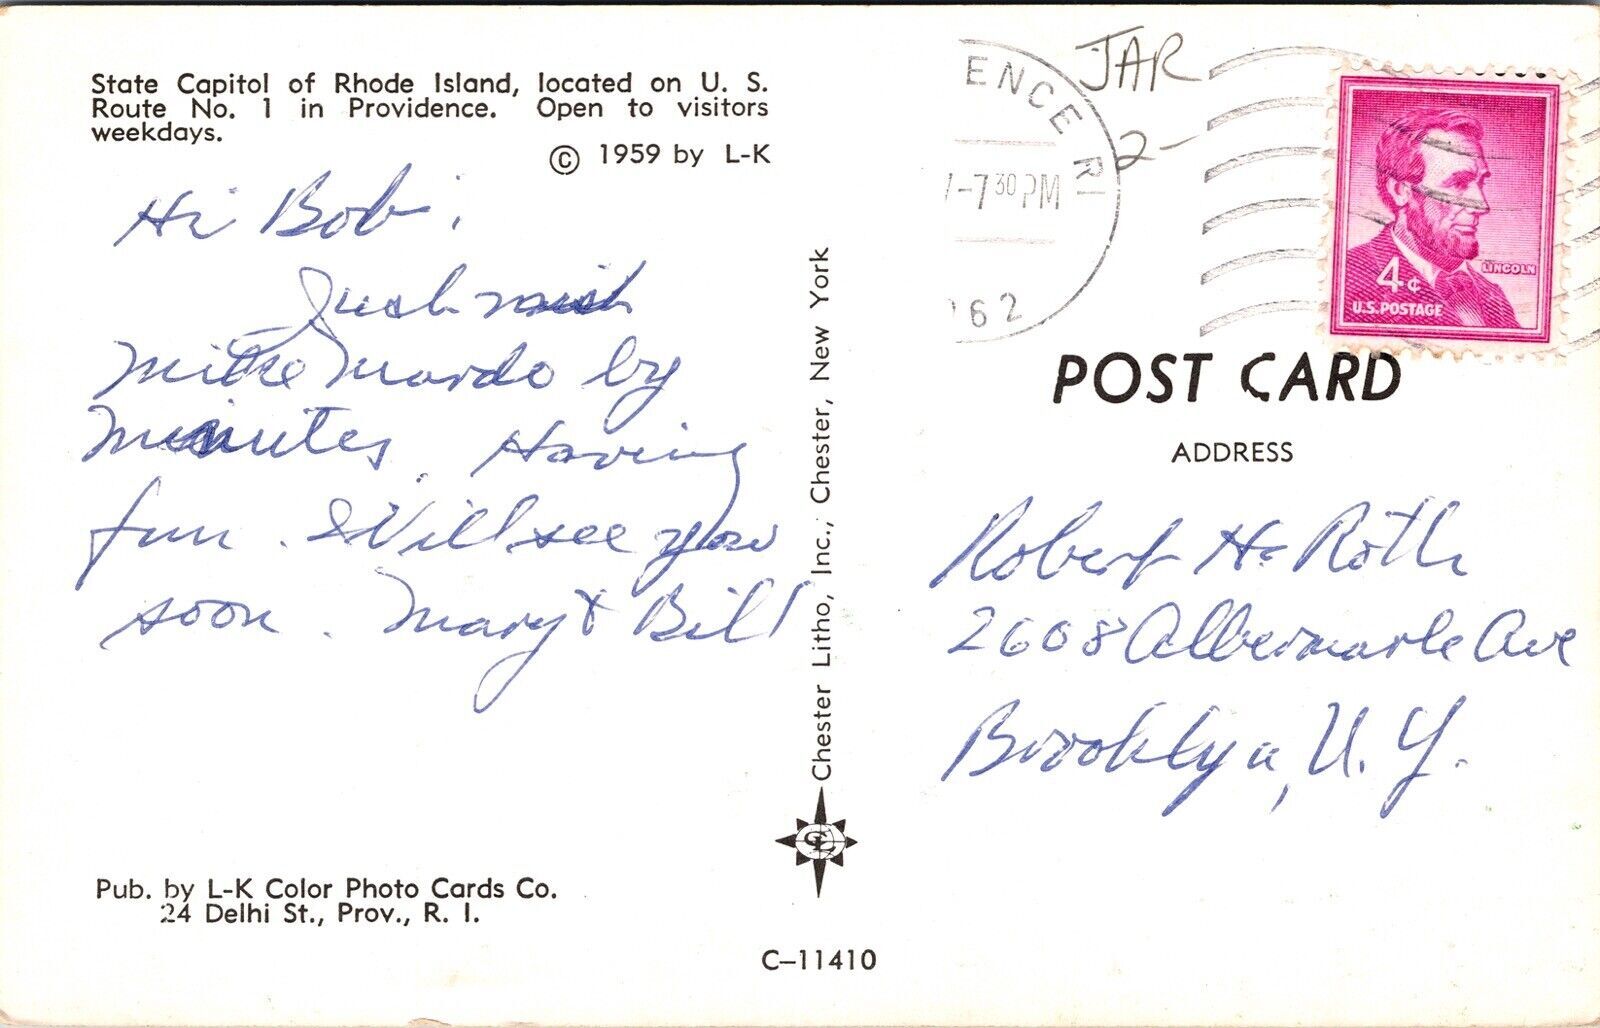 State Capitol of Rhode Island, located on U. S.
Route No. 1 in Providence. Open to visitors
weekdays.
© 1959 by L-K
Hi Bob,
Just miss
Mike Mardo by
minutes. Having
fun. Will see you
soon. Mary & Bill
Pub. by L-K Color Photo Cards Co.
24 Delhi St., Prov., R. I.
Chester Litho, Inc., Chester, New York
CL
C-11410
ENCE RI
-7 30 PM
962
JAR
2-
LINCOLN
4¢
U.S. POSTAGE
POST CARD
ADDRESS
Robert H. Roth
2608 Albermarle Ave
Brooklyn, N. Y.